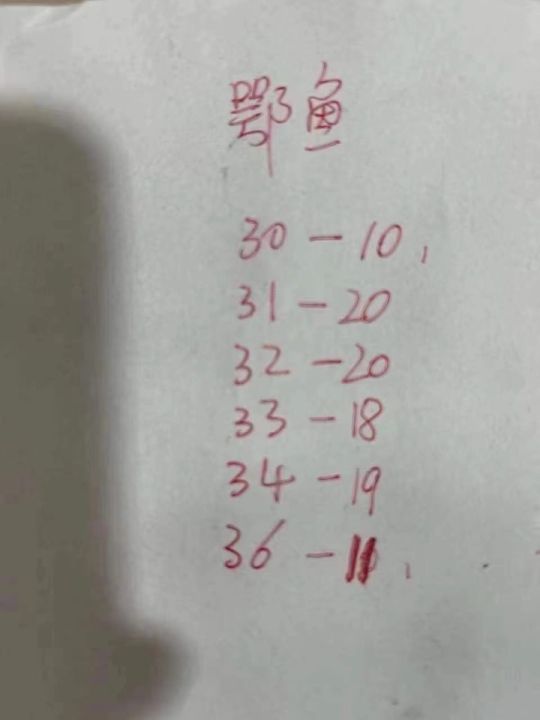 鄂鱼
30 - 10,
31 - 20
32 - 20
33 - 18
34 - 19
36 - 11,